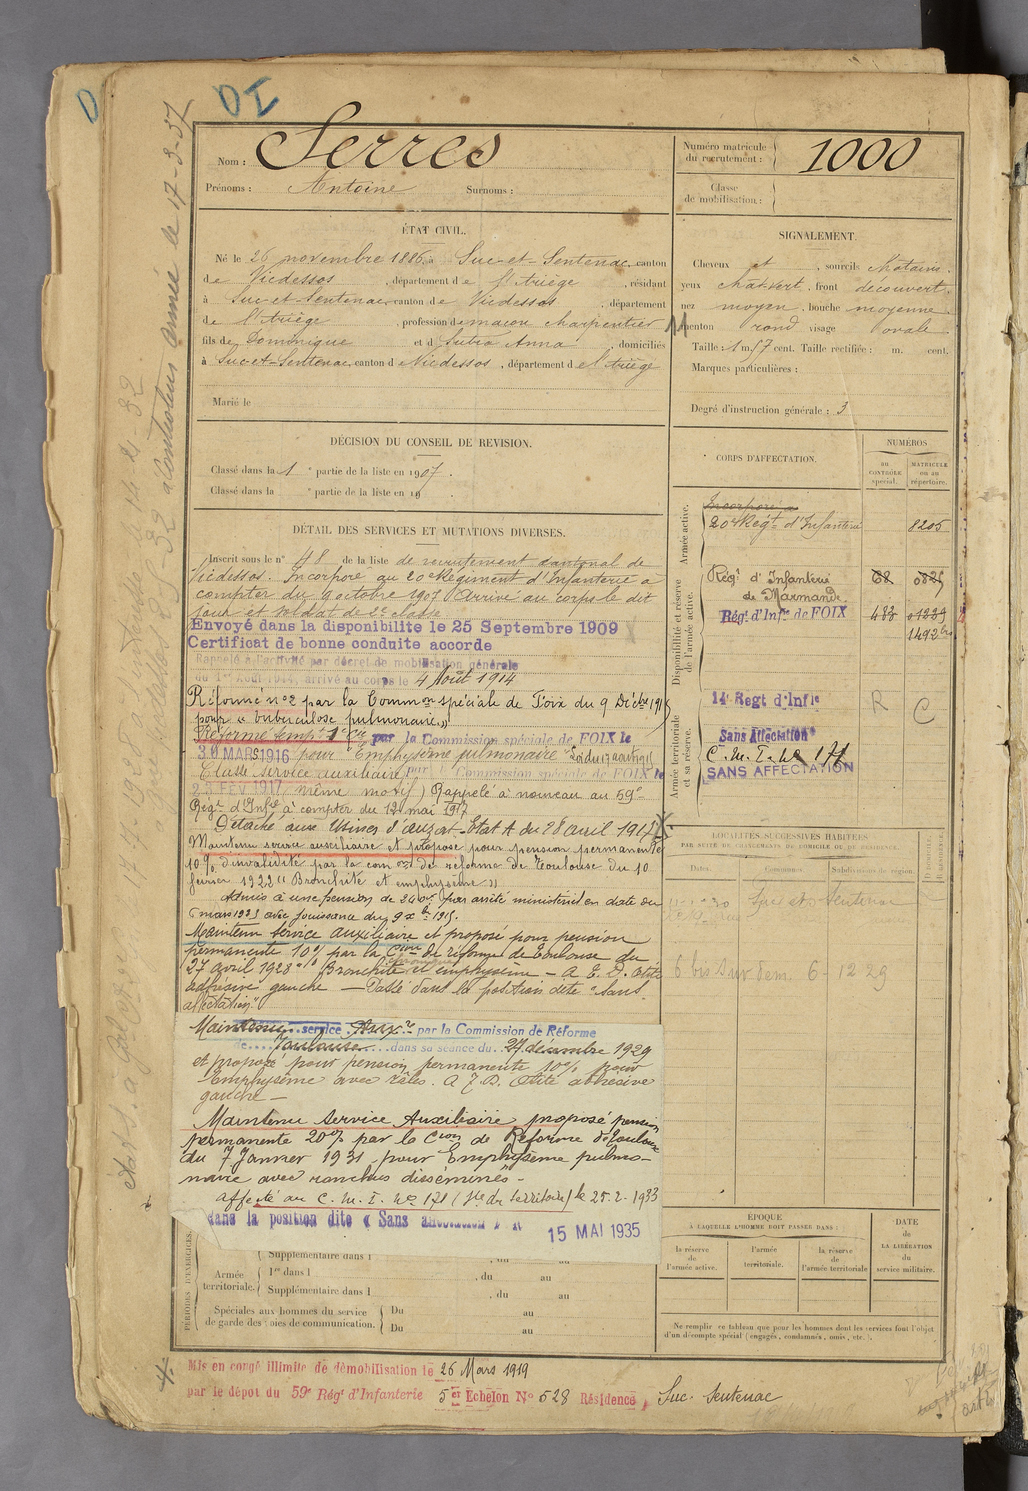 D
DI
Nom : Serres
Prénoms : Antoine Surnoms :
Numéro matricule du recrutement : 1000
Classe de mobilisation :
ÉTAT CIVIL.
Né le 26 novembre 1886, à Suc-et-Sentenac, canton
de Vicdessos, département de l'Ariège, résidant
à Suc-et-Sentenac, canton de Vicdessos, département
de l'Ariège, profession de maçon charpentier
fils de Dominique et d Subra Anna, domiciliés
à Suc-et-Sentenac, canton de Vicdessos, département de l'Ariège
Marié le
SIGNALEMENT.
Cheveux et, sourcils chatains.
yeux chat. vert, front découvert
nez moyen, bouche moyenne
menton rond visage ovale
Taille : 1 m. 57 cent. Taille rectifiée : m. cent.
Marques particulières :
Degré d'instruction générale : 3
DÉCISION DU CONSEIL DE REVISION.
Classé dans la 1e partie de la liste en 1907.
Classé dans la e partie de la liste en 19
DÉTAIL DES SERVICES ET MUTATIONS DIVERSES.
Inscrit sous le n° 48 de la liste de recrutement cantonal de
Vicdessos. Incorporé au 20e Régiment d'Infanterie à
compter du 9 octobre 1907 Arrivé au corps le dit
jour et soldat de 2e classe
Envoyé dans la disponibilite le 25 Septembre 1909
Certificat de bonne conduite accorde
Rappelé à l'activité par décret de mobilisation générale
du 1er Août 1914, arrivé au corps le 4 Août 1914
Réformé n°2 par la Common spéciale de Foix du 9 Décbre 1915
pour « tuberculose pulmonaire »
Réformé temp. 1e Cie par la Commission spéciale de FOIX le
30 MARS 1916 pour "Emphysème pulmonaire"
Classé service auxiliaire par Commission spéciale de FOIX le
28 FEV 1917 (même motif) Rappelé à nouveau au 59e
Régt d'Infie à compter du 12 mai 1917
Détaché aux Usines d'Auzat - Etat A du 28 avril 1917
Maintenu service auxiliaire et proposé pour pension permanente
10% d'invalidité par la comon de réforme de Toulouse du 10
février 1922 « Bronchite et emphysème »
Admis à une pension de 240 par arrêté ministériel en date du
mars 1923 avec jouissance du 9 xbre 1915.
Maintenu service auxiliaire et proposé pour pension
permanente 10% par la Cion de réforme de Toulouse du
27 avril 1928 " Bronchite et emphysème - A. E. D. Otite
adhésive gauche - Passé dans la position dite "Sans
affectation"
Maintenu service Auxre par la Commission de Réforme
de Toulouse dans sa séance du 27 décembre 1929
et proposé pour pension permanente 10% pour
Emphysème avec râles. A. E. D. Otite adhésive
gauche -
Maintenu Service Auxiliaire, proposé pension
permanente 20% par la Cion de Réforme de Toulouse
du 7 Janvier 1931 pour Emphysème pulmo-
naire avec ronchus disséminés -
affecté au C. M. I. No 171 (Ste du territoire) le 25-2-1933
dans la position dite « Sans affectation »
15 MAI 1935
CORPS D'AFFECTATION.
NUMÉROS
AU CONTRÔLE spécial.
MATRICULE ou au répertoire.
Armée active.
Incorporé au
20e Régt d'Infanterie 8205
Disponibilité et réserve de l'armée active.
Régt d'Infanterie 68 0825
de Marmande
Régt d'Infie de FOIX 483 01229
1492
Armée territoriale et sa réserve.
14e Regt d'Infie R C
Sans Affectation
C. M. I. No 171
SANS AFFECTATION
LOCALITÉS SUCCESSIVES HABITÉES
PAR SUITE DE CHANGEMENTS DE DOMICILE OU DE RÉSIDENCE.
Dates. Communes. Subdivisions de région.
Suc et Sentenac
6 bis Suv dem 6-12 29
ÉPOQUE
À LAQUELLE L'HOMME DOIT PASSER DANS :
la réserve de l'armée active.
l'armée territoriale.
la réserve de l'armée territoriale
DATE de LA LIBÉRATION du service militaire.
Ne remplir ce tableau que pour les hommes dont les services font l'objet
d'un décompte spécial (engagés, condamnés, omis, etc.).
PÉRIODES D'EXERCICES.
Supplémentaire dans l
Armée territoriale. 1re dans l , du au
Supplémentaire dans l , du au
Spéciales aux hommes du service de garde des voies de communication. Du au
Du au
Mis en congé illimité de démobilisation le 26 Mars 1919
par le dépot du 59e Régt d'Infanterie 5er Echelon N° 528 Résidence, Suc-Sentenac